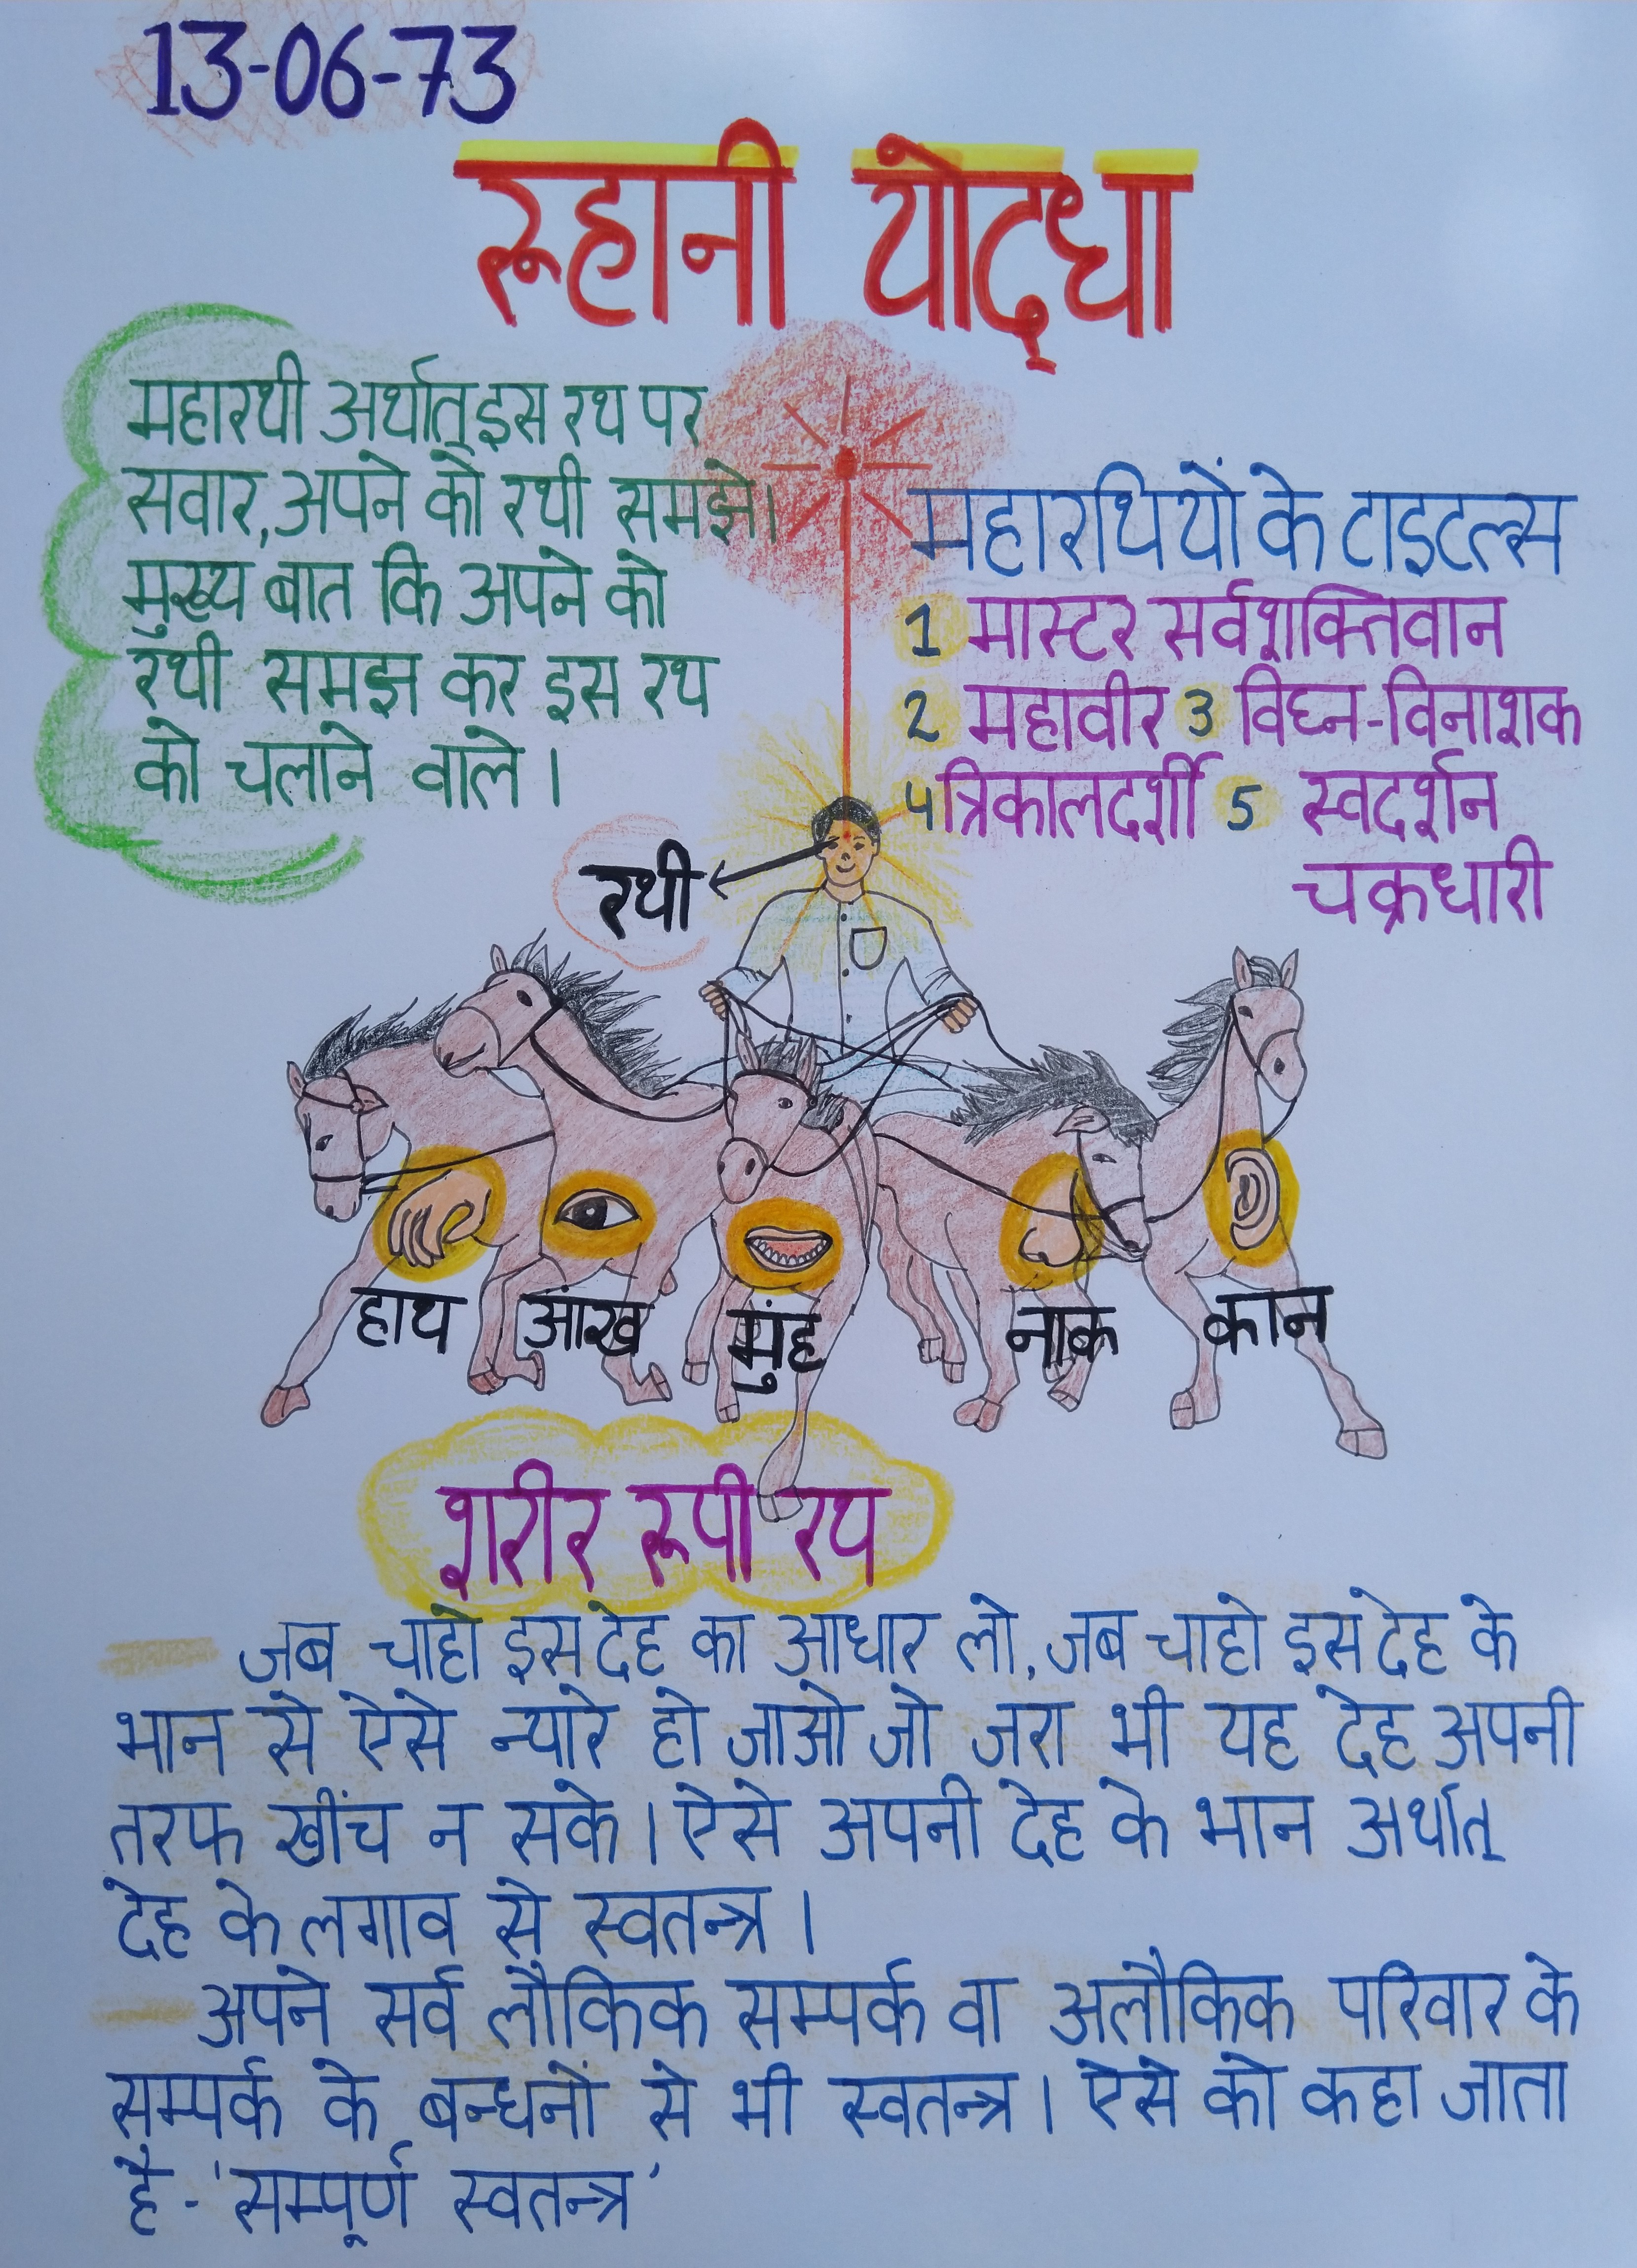 13-06-73
रूहानी योद्धा
महारथी अर्थात् इस रथ पर
सवार, अपने को रथी समझे।
मुख्य बात कि अपने को
रथी समझ कर इस रथ
को चलाने वाले।
महारथियों के टाइटल्स
1 मास्टर सर्वशक्तिवान
2 महावीर 3 विघ्न-विनाशक
4 त्रिकालदर्शी 5 स्वदर्शन
चक्रधारी
रथी
हाथ आंख मुंह नाक कान
शरीर रूपी रथ
जब चाहो इस देह का आधार लो, जब चाहो इस देह के
भान से ऐसे न्यारे हो जाओ जो जरा भी यह देह अपनी
तरफ खींच न सके। ऐसे अपनी देह के भान अर्थात्
देह के लगाव से स्वतन्त्र।
अपने सर्व लौकिक सम्पर्क वा अलौकिक परिवार के
सम्पर्क के बन्धनों से भी स्वतन्त्र। ऐसे को कहा जाता
है - 'सम्पूर्ण स्वतन्त्र'